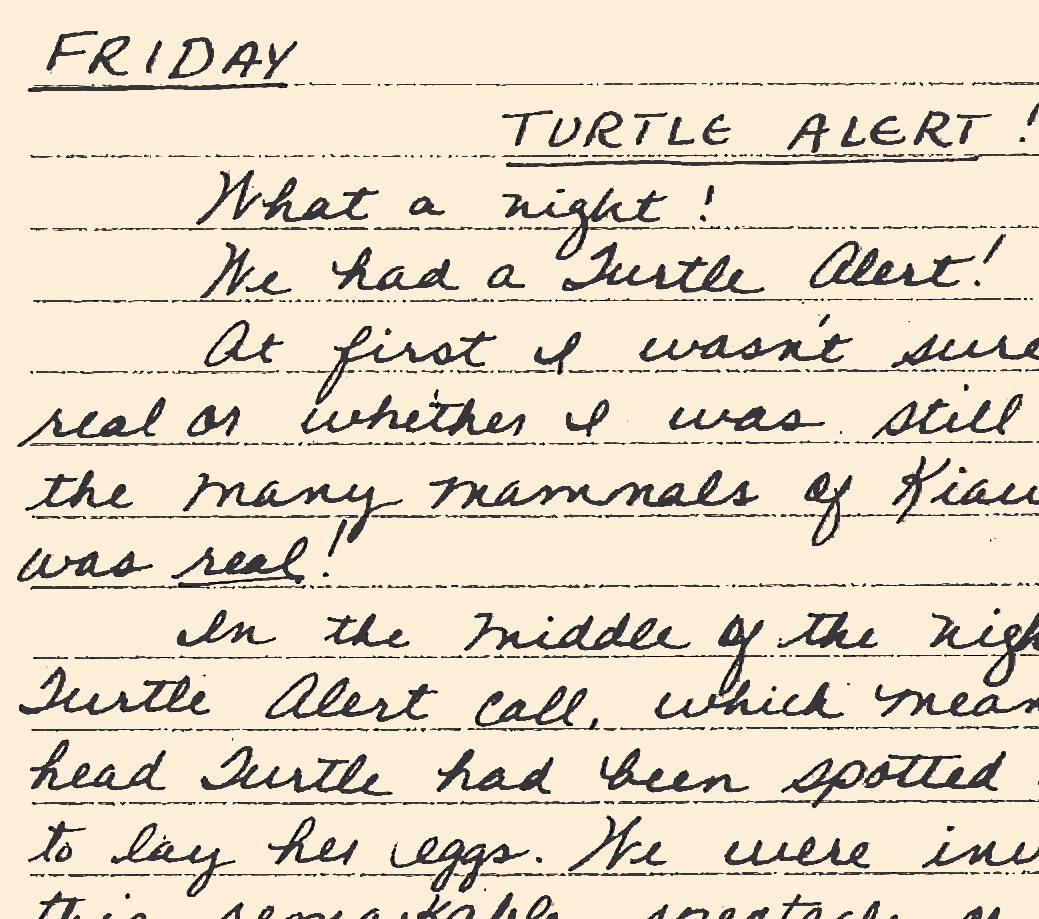 FRIDAY
TURTLE ALERT!
What a night!
We had a Turtle Alert!
At first I wasn't sure
real or whether I was still
the many mammals of Kiaw
was real!
In the middle of the nigh
Turtle Alert call, which mean
head Turtle had been spotted
to lay her eggs. We were inv
this remarkable